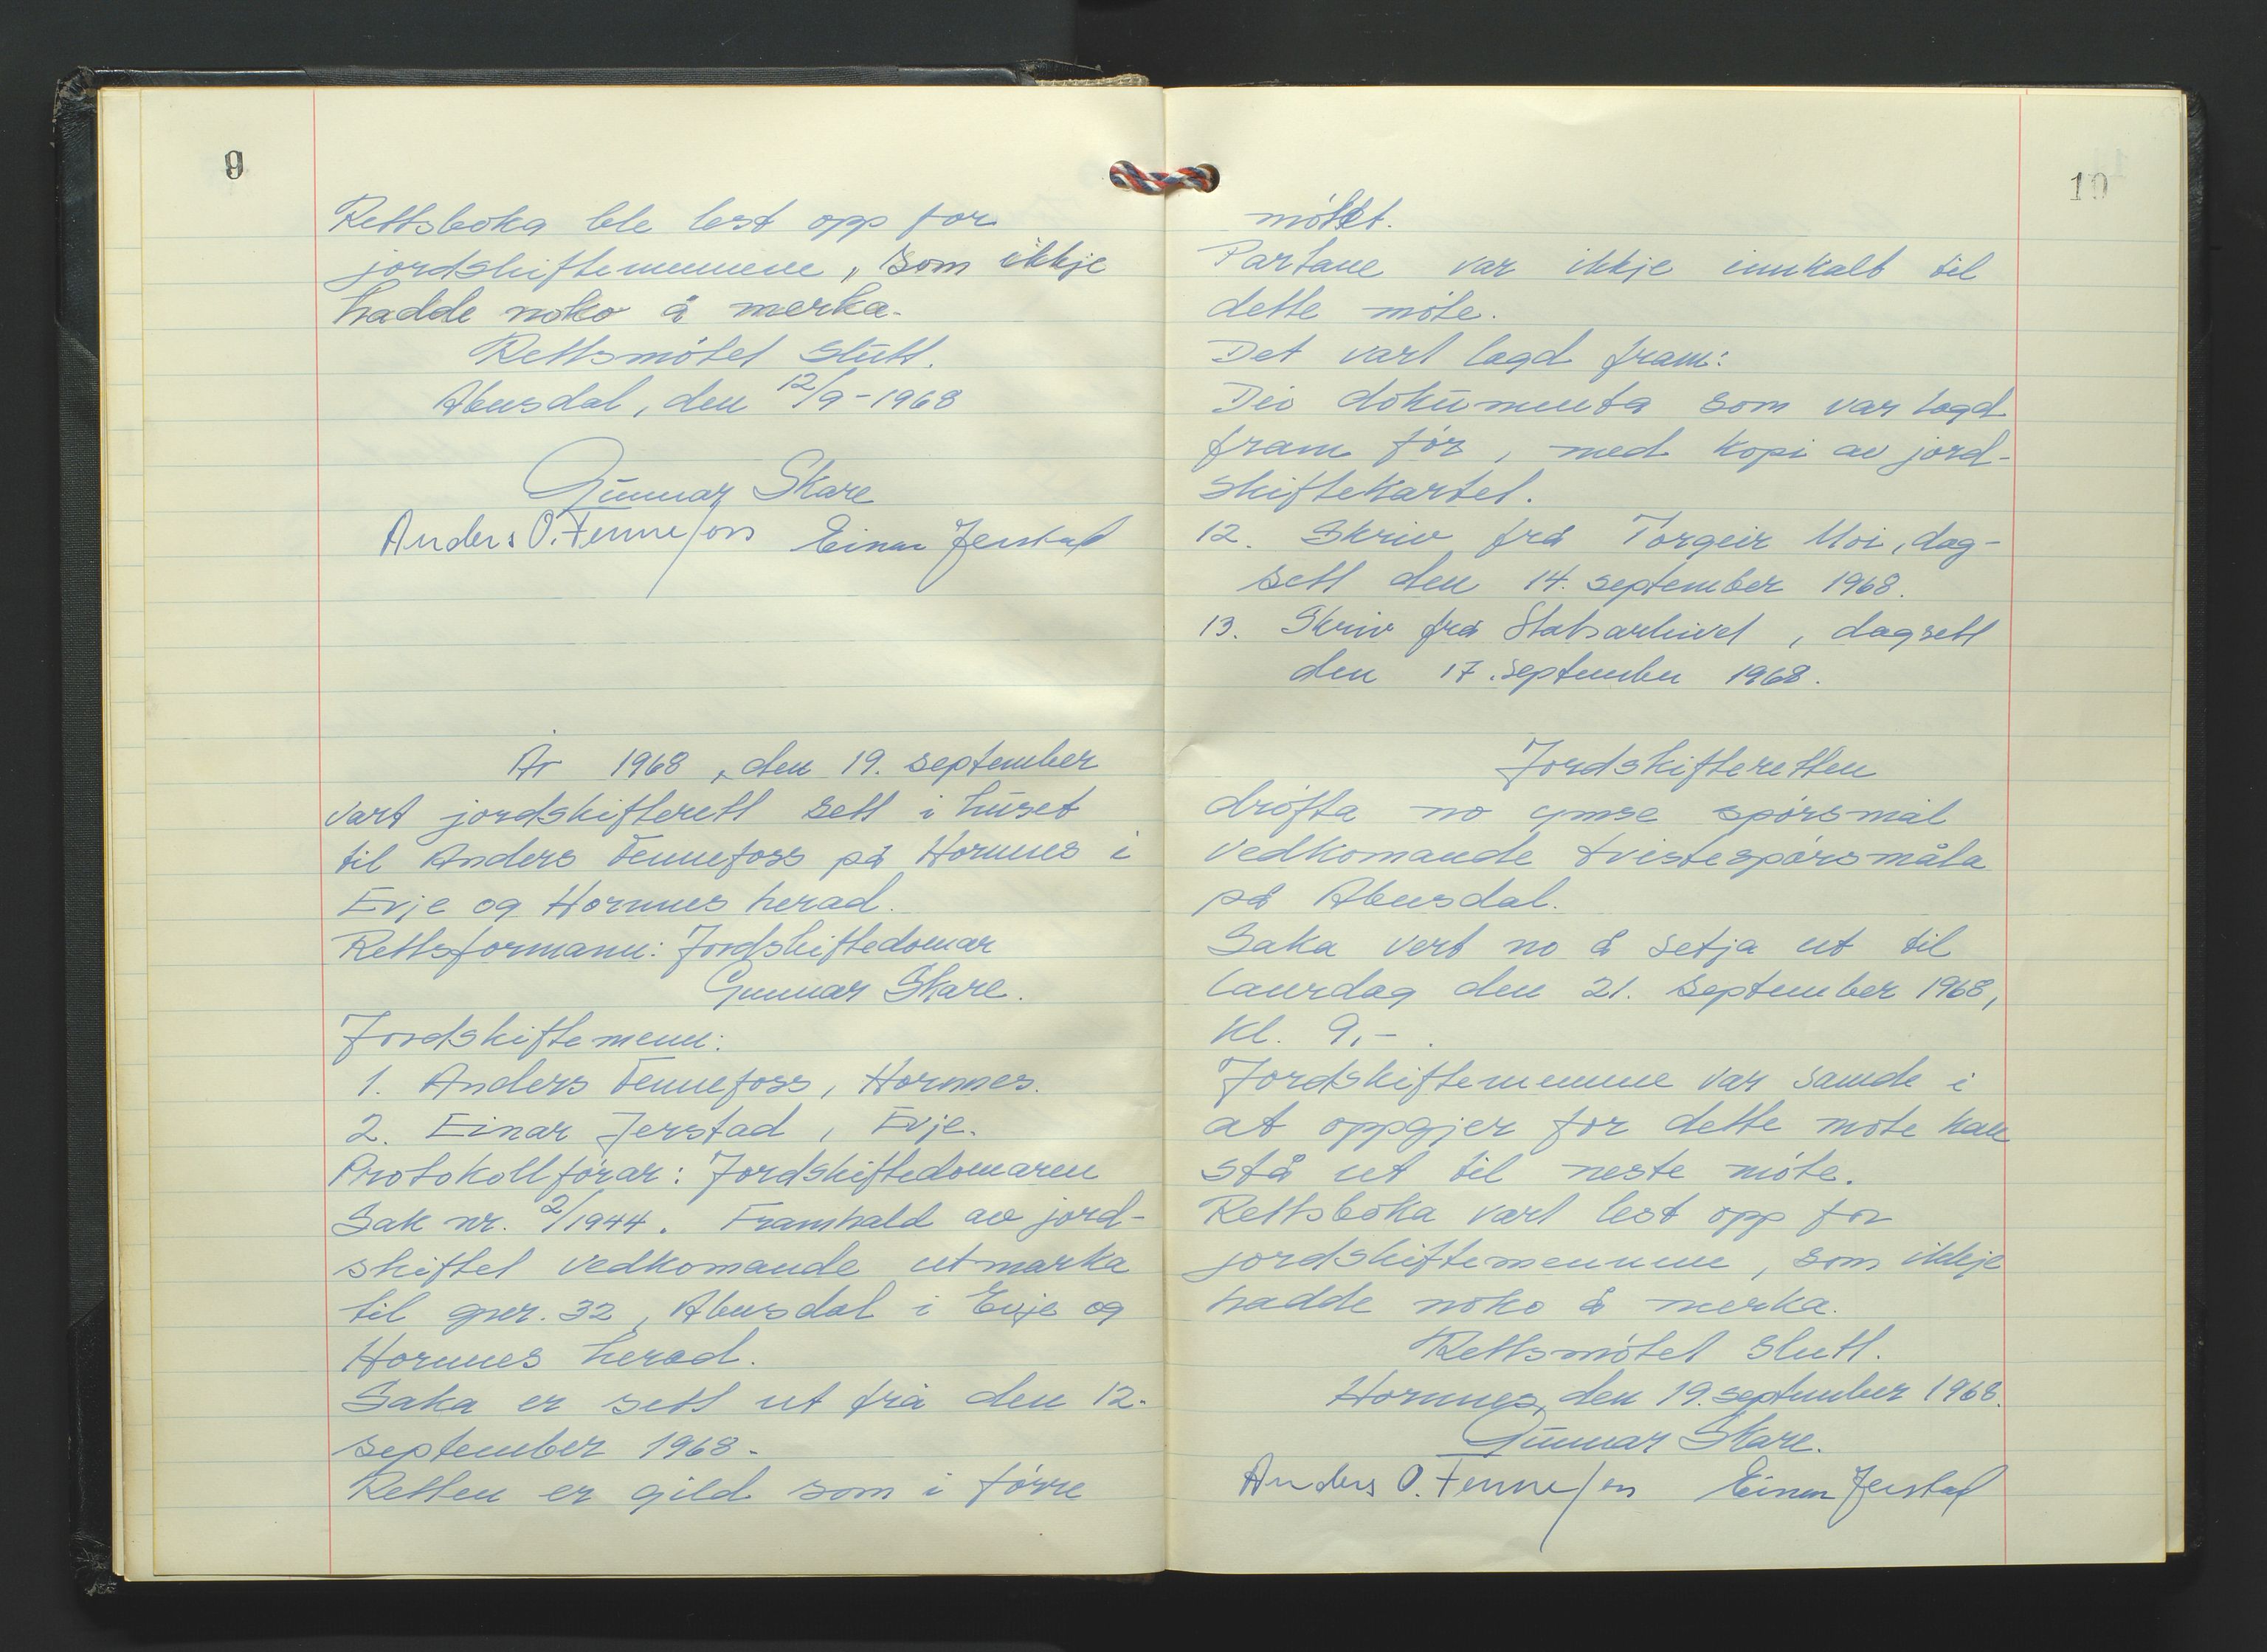 9
Rettsboka ble lest opp for
jordskiftemennene, som ikkje
hadde noko å merka.
Rettsmötet slutt.
Abusdal, den 12/9-1968
Gunnar Skare
Anders O. Fennefoss Einar Jerstad
År 1968, den 19. september
vart jordskifterett sett i huset
til Anders Fennefoss på Hornnes i
Evje og Hornnes herad.
Rettsformann: Jordskiftedomar
Gunnar Skare.
Jordskiftemenn:
1. Anders Fennefoss, Hornnes.
2. Einar Jerstad, Evje.
Protokollförar: Jordskiftedomaren
Sak nr. 2/1944. Framhald av jord-
skiftet vedkomande utmarka
til gnr. 32, Abusdal i Evje og
Hornnes herad.
Saka er sett ut frå den 12.
september 1968.
Retten er gild som i förre
10
mötet.
Partane var ikkje innkalt til
dette möte.
Det vart lagd fram:
Dei dokumenta som var lagd
fram för, med kopi av jord-
skiftekartet.
12. Skriv frå Torgeir Moi, dag-
sett den 14. september 1968.
13. Skriv frå Statsarkivet, dagsett
den 17. september 1968.
Jordskifteretten
dröfta no ymse spörsmål
vedkomande tvistespörsmåla
på Abusdal.
Saka vert no å setja ut til
laurdag den 21. september 1968,
kl. 9,-.
Jordskiftemennene var samde i
at oppgjer for dette möte kan
stå ut til neste möte.
Rettsboka vart lest opp for
jordskiftemennene, som ikkje
hadde noko å merka.
Rettsmötet slutt.
Hornnes, den 19. september 1968.
Gunnar Skare.
Anders O. Fennefoss Einar Jerstad